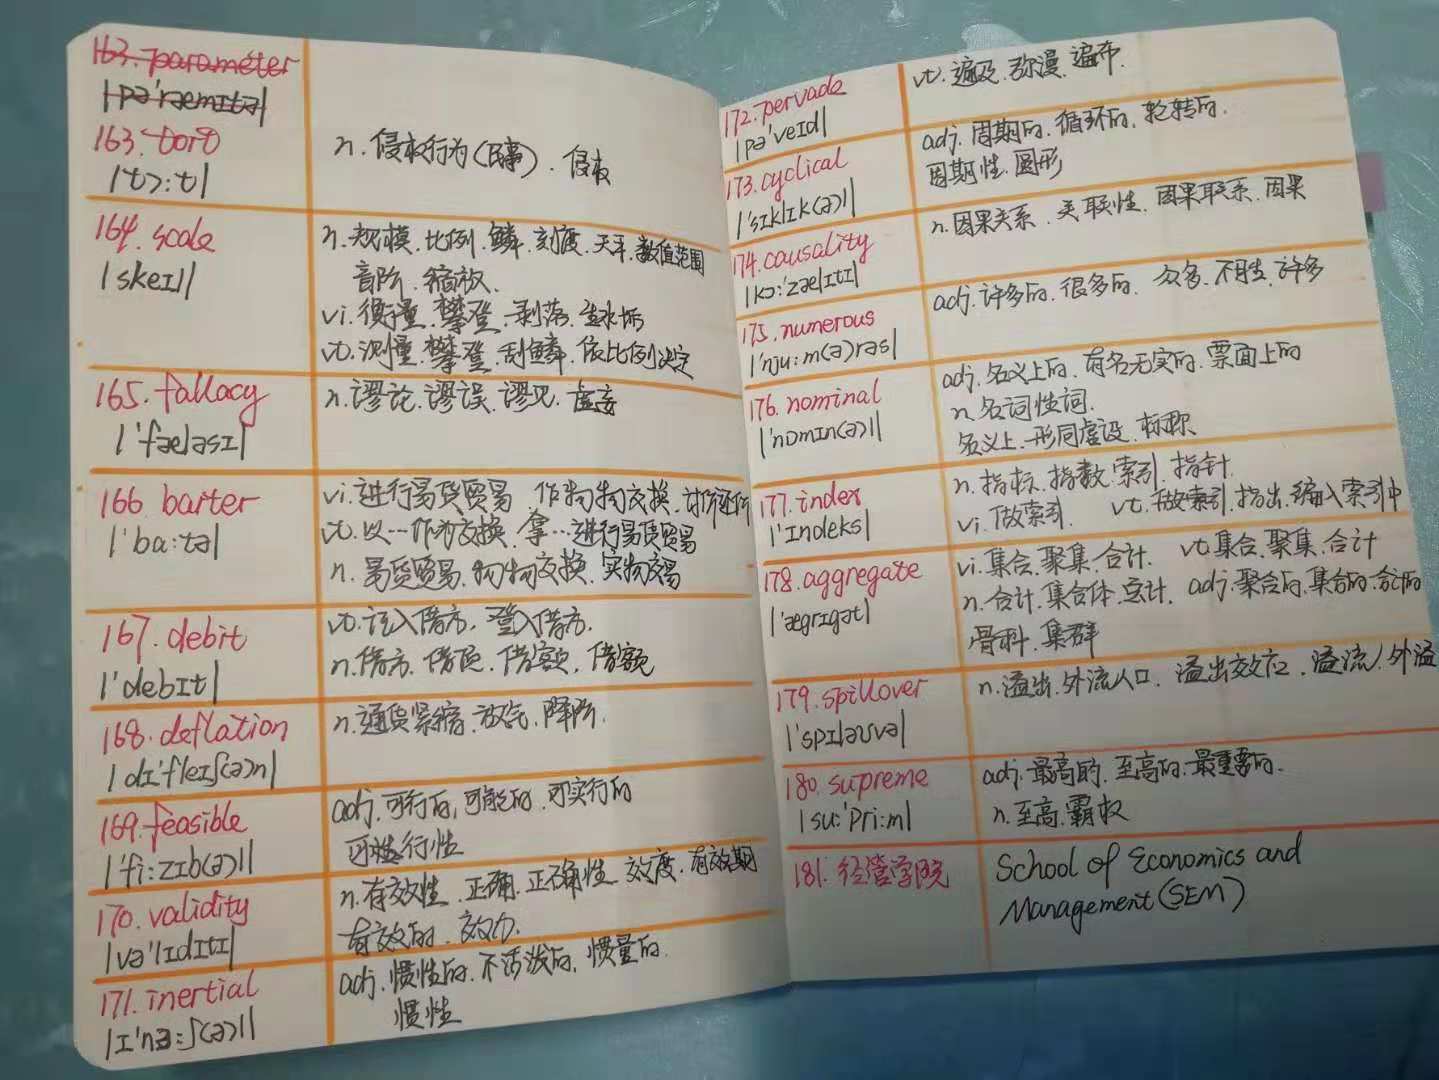 163. parameter
|pə'ræmɪtə|
163. tort
|tɔ:t|
n. 侵权行为(民事)、侵权
164. scale
|skeɪl|
n. 规模、比例、鳞、刻度、天平、数值范围
音阶、缩放、
vi. 衡量、攀登、剥落、生水垢
vt. 测量、攀登、刮鳞、依比例决定
165. fallacy
|'fæləsɪ|
n. 谬论、谬误、谬见、虚妄
166 barter
|'ba:tə|
vi. 进行易货贸易、作物物交换、讨价还价
vt. 以…作为交换、拿…进行易货贸易
n. 易货贸易、物物交换、实物交易
167. debit
|'debɪt|
vt. 记入借方、登入借方、
n. 借方、借项、借款、借额
168. deflation
|dɪ'fleɪʃ(ə)n|
n. 通货紧缩、放气、降阶、
169. feasible
|'fi:zɪb(ə)l|
adj. 可行的、可能的、可实行的
可行性
170. validity
|və'lɪdɪtɪ|
n. 有效性、正确、正确性、效度、有效期
有效的、效力、
171. inertial
|ɪ'nɜ:ʃ(ə)l|
adj. 惯性的、不活泼的、惯量的、
惯性
172. pervade
|pə'veɪd|
vt. 遍及、弥漫、遍布、
173. cyclical
|'sɪklɪk(ə)l|
adj. 周期的、循环的、轮转的、
周期性、圆形
174. causality
|kɔ:'zælɪtɪ|
n. 因果关系、关联性、因果联系、因果
175. numerous
|'nju:m(ə)rəs|
adj. 许多的、很多的、众多、不胜、许多
176. nominal
|'nɒmɪn(ə)l|
adj. 名义上的、有名无实的、票面上的
n. 名词性词、
名义上、形同虚设、标称、
177. index
|'ɪndeks|
n. 指标、指数、索引、指针、
vi. 做索引、 vt. 做索引、指出、编入索引中
178. aggregate
|'ægrɪgət|
vi. 集合、聚集、合计、 vt. 集合、聚集、合计
n. 合计、集合体、总计、 adj. 聚合的、集合的、合计的
骨料、集群
179. spillover
|'spɪləʊvə|
n. 溢出、外流人口、溢出效应、溢流、外溢
180. supreme
|su:'pri:m|
adj. 最高的、至高的、最重要的、
n. 至高、霸权
181. 经管学院
School of Economics and
Management (SEM)